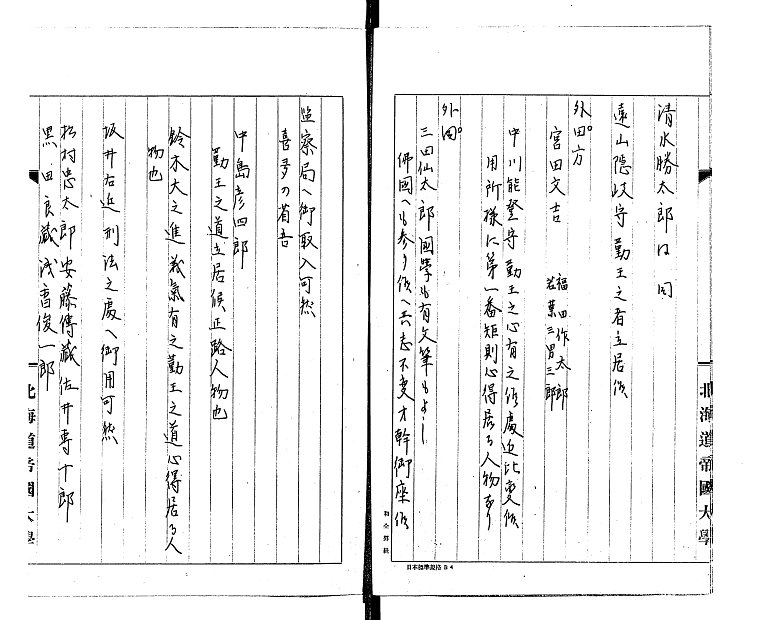 清水勝太郎は同
遠山隠岐守勤王之者立居候
外国方
宮田文吉
福田作太郎
若菜三男三郎
中川能登守勤王之心有之候處近比変候
用所様に第一番矩則心得居る人物なり
外国
三田仙太郎國學も有文筆もよし
佛國へも参り候へ共志不変才幹御座候
監察局へ御取入可然
喜多の省吾
中島彦四郎
勤王之道立居候正路人物也
鈴木大之進義氣有之勤王之道心得居る人
物也
坂井右近刑法之處へ御用可然
松村忠太郎安藤傳蔵佐井専十郎
黒田良蔵浅香俊一郎
北海道帝國大學
北海道帝國大學
日本標準規格B4